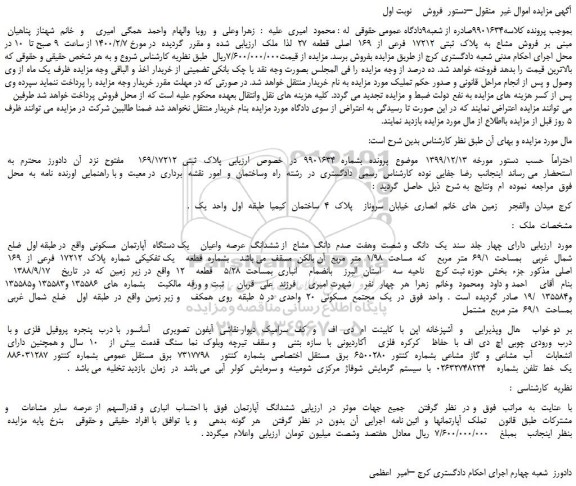 آگهی مزایده اموال غیر منقول –دستور فروش نوبت اول
بموجب پرونده کلاسه۹۹۰۱۶۳۴صادره از شعبه۹دادگاه عمومی حقوقی له : محمود امیری علیه : زهرا وعلی و رویا والهام واحمد همگی امیری و خانم شهناز پناهیان
مبنی بر فروش مشاع به پلاک ثبتی ۱۷۲۱۲ فرعی از ۱۶۹ اصلی قطعه ۲۷ لذا ملک ارزیابی شده و مقرر گردیده در مورخ ۱۴۰۰/۲/۷ از ساعت ۹ صبح تا ۱۰ در
محل اجرای احکام مدنی شعبه دادگستری کرج از طریق مزایده بفروش برسد. مزایده از قیمت۷/۶۰۰/۰۰۰/۰۰۰ریال طبق نظریه کارشناس شروع و به هر شخص حقیقی و حقوقی که
بالاترین قیمت را بدهد فروخته خواهد شد. ده درصد از وجه مزایده را فی المجلس بصورت وجه نقد یا چک بانکی تضمینی از خریدار اخذ و الباقی وجه مزایده ظرف یک ماه از وی
وصول و پس از انجام مراحل قانونی و صدور حکم تملیک مورد مزایده به نام خریدار منتقل خواهد شد. در صورتی که در مهلت مقرر خریدار وجه مزایده را پرداخت ننماید سپرده وی
پس از کسر هزینه های مزایده به نفع دولت ضبط و مزایده تجدید می گردد. کلیه هزینه های نقل وانتقال بعهده محکوم علیه است که از محل فروش پرداخت خواهد شد طرفین
می توانند مزایده اعتراض نمایند که در این صورت تا رسیدگی به اعتراض از سوی دادگاه مورد مزایده بنام خریدار منتقل نخواهد شد ضمنا طالبین شرکت در مزایده می توانند ظرف
۵ روز قبل از مزایده بااطلاع از مال مورد مزایده بازدید نمایند.
مال مورد مزایده و بهای آن طبق نظر کارشناس بدین شرح است:
احتراماً حسب دستور مورخه ۱۳۹۹/۱۲/۱۳ موضوع پرونده بشماره ۹۹۰۱۶۳۴ در خصوص ارزیابی پلاک ثبتی ۱۶۹/۱۷۲۱۲ مفتوح نزد آن دادورز محترم به
استحضار می رساند اینجانب رضا جفایی نوده کارشناس رسمی دادگستری در رشته راه وساختمان و امور نقشه برداری در معیت و با راهنمایی اورنده نامه به محل
فوق مراجعه نموده ام ونتایج به شرح ذیل حاصل گردید :
کرج میدان والفجر زمین های خانم انصاری خیابان سروناز پلاک ۴ ساختمان کیمیا طبقه اول واحد یک .
مشخصات ملک :
مورد ارزیابی دارای چهار جلد سند یک دانگ و شصت وهفت صدم دانگ مشاع از ششدانگ عرصه واعیان یک دستگاه آپارتمان مسکونی واقع در طبقه اول ضلع
شمال غربی بمساحت ۶۹/۱ متر مربع که مساحت ۱/۹۸ متر مربع آن بالکن مسقف می باشد بشماره قطعه یک تفکیکی شماره پلاک ۱۷۲۱۲ فرعی از ۱۶۹
اصلی مذکور جزء بخش حوزه ثبت کرج ناحیه سه استان البرز بانضمام انباری بمساحت ۵/۲۸ قطعه ۱۲ واقع در زیر زمین که در تاریخ ۱۳۸۸/۹/۱۷
بنام آقای احمد و داود ومحمود وخانم زهرا هر چهار نفر : شهرت امیری فرزند علی قربان ثبت و ورقه مالکیت بشماره های ۱۳۵۵۸۶ و۱۳۵۵۸۳ و۱۳۵۵۸۵
و۱۳۵۵۸۴ /۱۹ صادر گردیده است . واحد فوق در یک مجتمع مسکونی ۲۰ واحدی در ۵ طبقه روی همکف و زیر زمین واقع در طبقه اول ضلع شمال غربی
بمساحت ۶۹/۱ متر مربع مشتمل
بر دو خواب هال وپذیرایی و آشپزخانه اپن با کابینت ام دی اف و کف سرامیک دیوار نقاشی آیفون تصویری آسانسور با درب پنجره پروفیل فلزی و با
درب ورودی چوبی اچ دی اف با حفاظ کرکره فلزی آکاردیونی با سازه بتنی و سقف تیرچه وبلوک نما سنگ قدمت بیش از ۱۰ سال و همچنین دارای
انشعابات آب مشاعی و گاز مشاعی بشماره کنتور ۶۵۰۰۲۸۰ برق مستقل اختصاصی بشماره کنتور ۷۳۱۷۷۹۸ برق مستقل عمومی بشماره کنتور ۸۸۶۰۳۱۲۸۷
یک خط تلفن بشماره ۰۲۶۳۳۷۴۸۲۲۴ با سیستم گرمایش شوفاژ مرکزی شومینه و سرمایش کولر آبی می باشد در زمان بازدید تخلیه می باشد .
نظریه کارشناسی :
با عنایت به مراتب فوق و در نظر گرفتن جمیع جهات موثر در ارزیابی ششدانگ آپارتمان فوق با احتساب انباری و قدرالسهم از عرصه سایر مشاعات و
مشترکات طبق قانون تملک آپارتمانها و ائین نامه اجرایی آن بدون در نظر گرفتن هر گونه بدهی و یا توافق با افراد حقیقی و حقوقی بنرخ پایه مزایده
بنظر اینجانب بمبلغ ۷/۶۰۰/۰۰۰/۰۰۰ ریال معادل هفتصد وشصت میلیون تومان ارزیابی واعلام میگردد .
دادورز شعبه چهارم اجرای احکام دادگستری کرج –امیر اعظمی